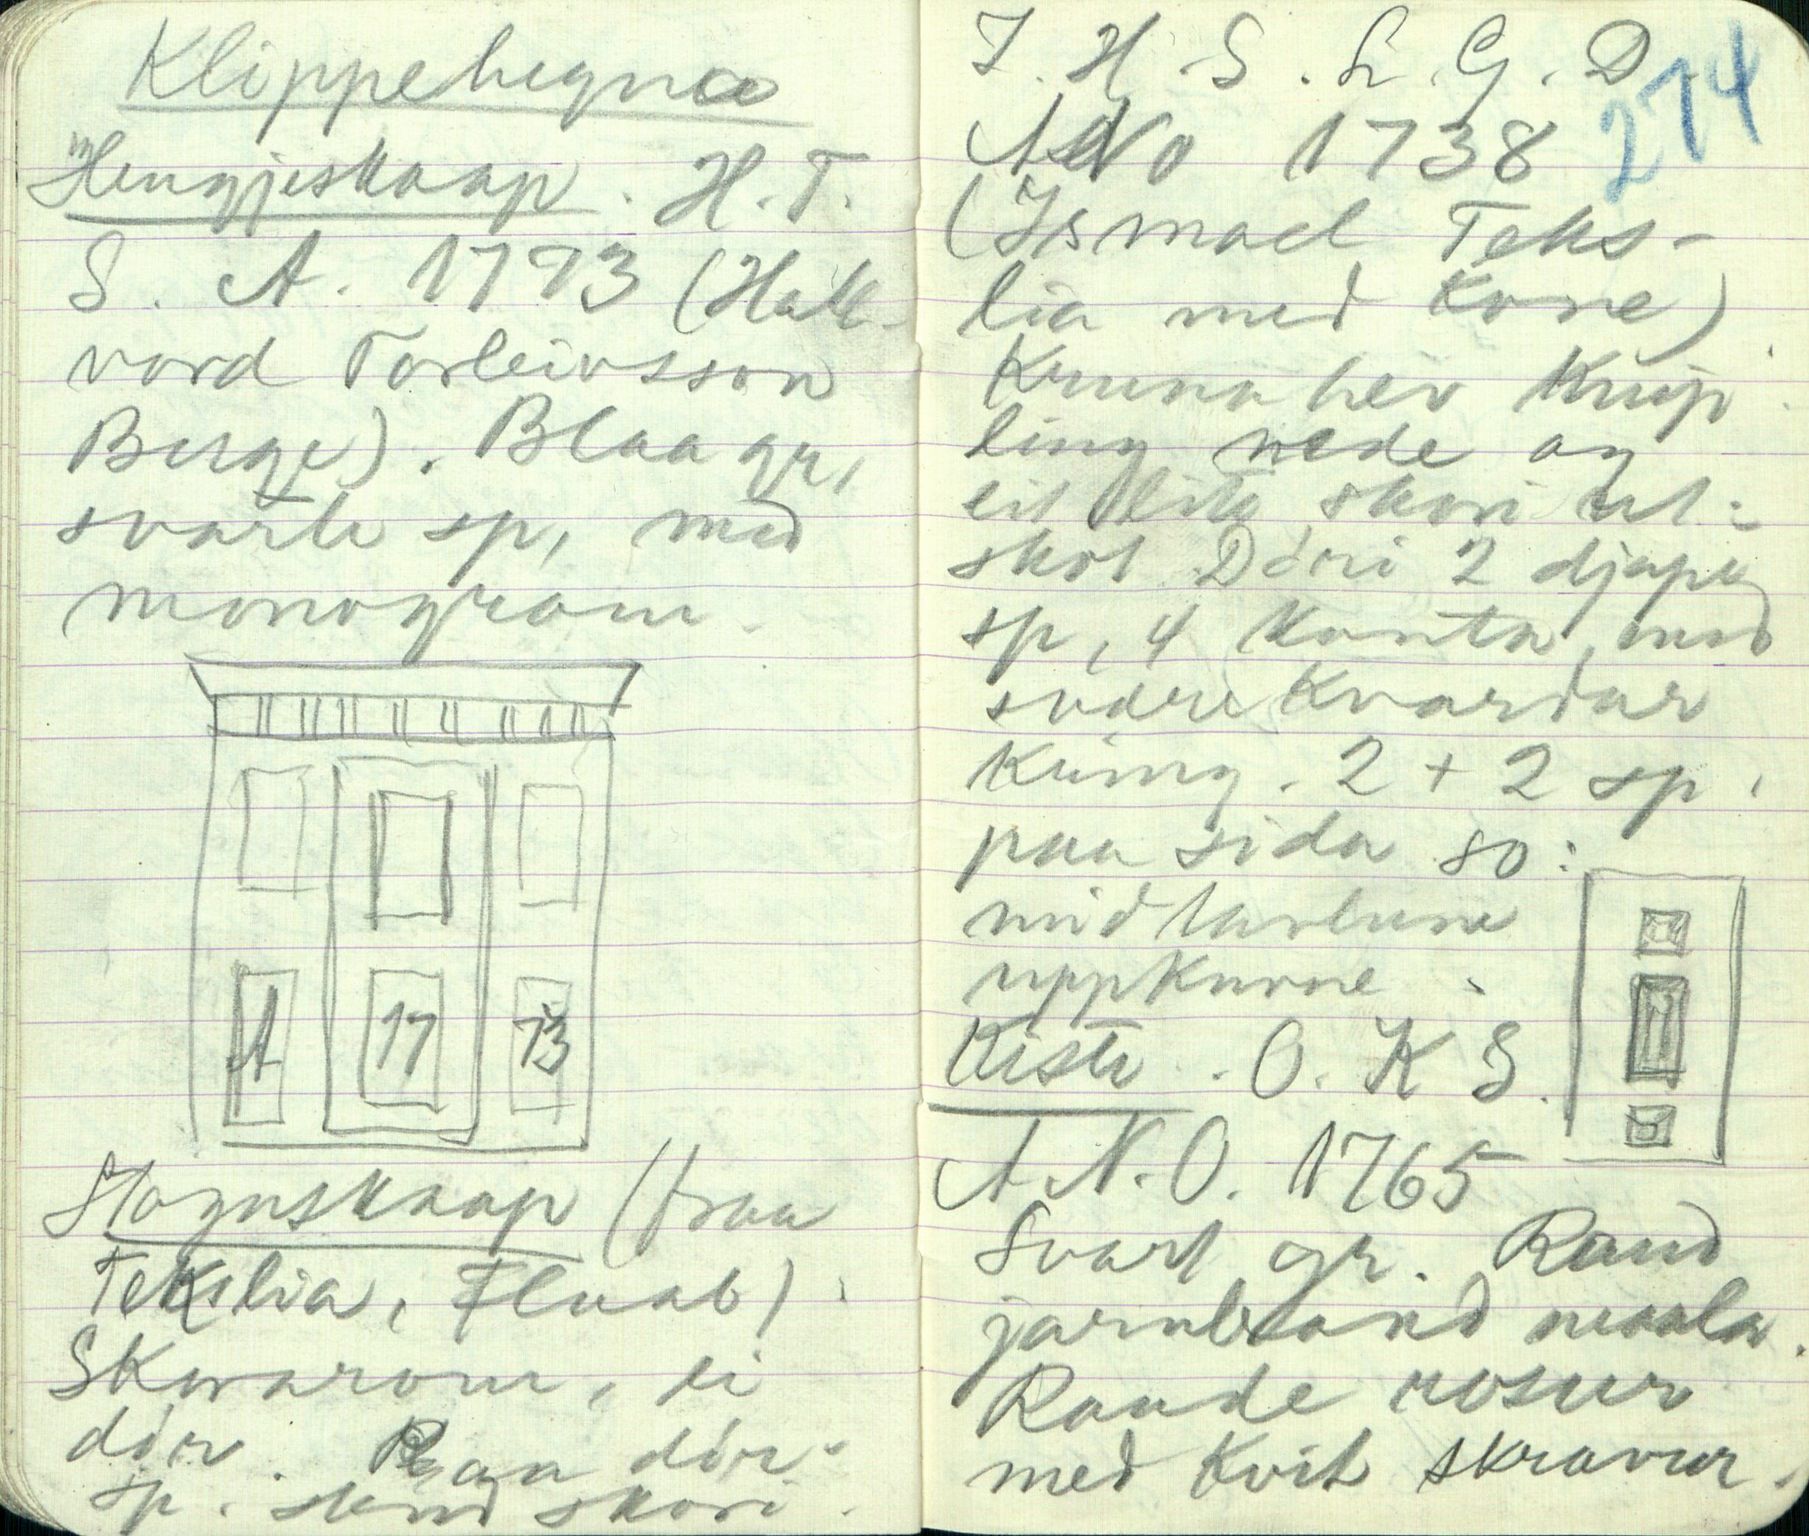 Klippehegna
Hengjeskaap. H. T.
S. A. 1773 (Hall-
vord Torleivsson
Berge). Blaa gr,
svarte sp, med
monogram.
A 17 73
Stognskaap (fraa
Tekslia, Flaab).
Skvarom, ei
dör. Paa dör-
sp. skori
I. H. S. L. G. D.
274
ANo 1738
(Ismael Teks-
lia med kone)
Kruna hev
ling nede og
eit lite skori ut-
skot Döri 2 djupe
sp, 4 kanta, med
svære kvardar
kring. 2 + 2 sp,
paa sida so:
midtarbune
uppkurne.
Kiste. O. K S.
A. N. O. 1765
Svart gr. Raud
jarnband maala.
Raude rosur
med kvit skravur.